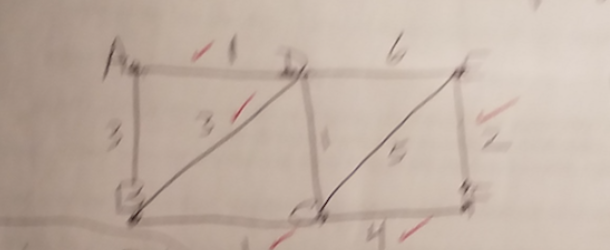 A 1 D 6 E
3 3 1 5 2
B C F
4